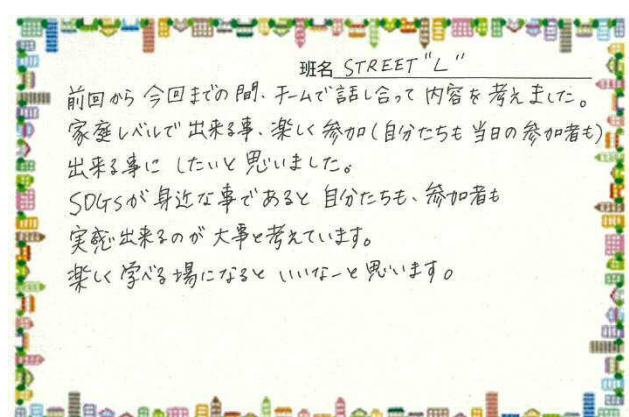 班名 STREET "L"
前回から今回までの間、チームで話し合って内容を考えました。
家庭レベルで出来る事、楽しく参加(自分たちも当日の参加者も)
出来る事にしたいと思いました。
SDGSが身近な事であると自分たちも、参加者も
実感出来るのが大事と考えています。
楽しく学べる場になるといいなーと思います。